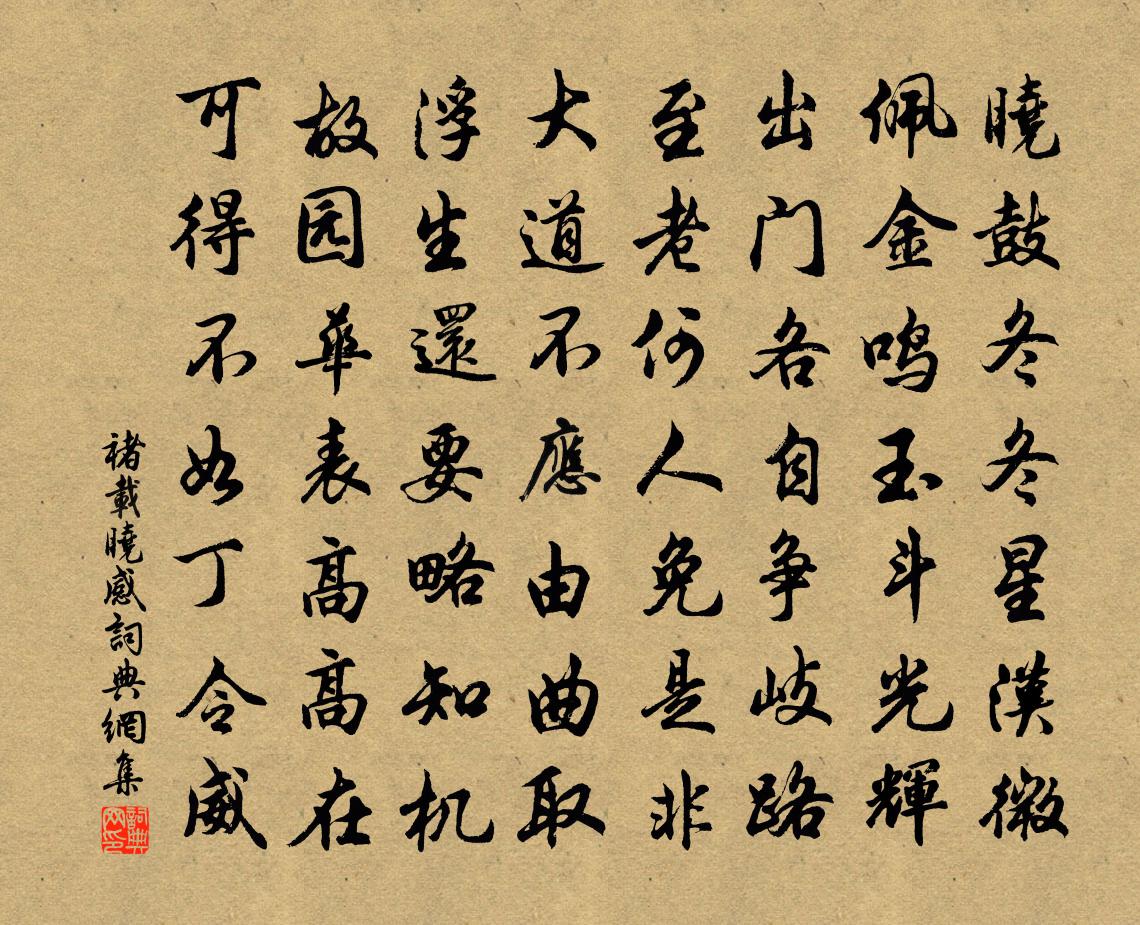 曉鼓冬冬星漢微
佩金鸣玉斗光輝
出门各自争歧路
至老何人免是非
大道不應由曲取
浮生還要略知机
故园華表高高在
可得不如丁令威
褚載曉感詞典網集
詞典網印